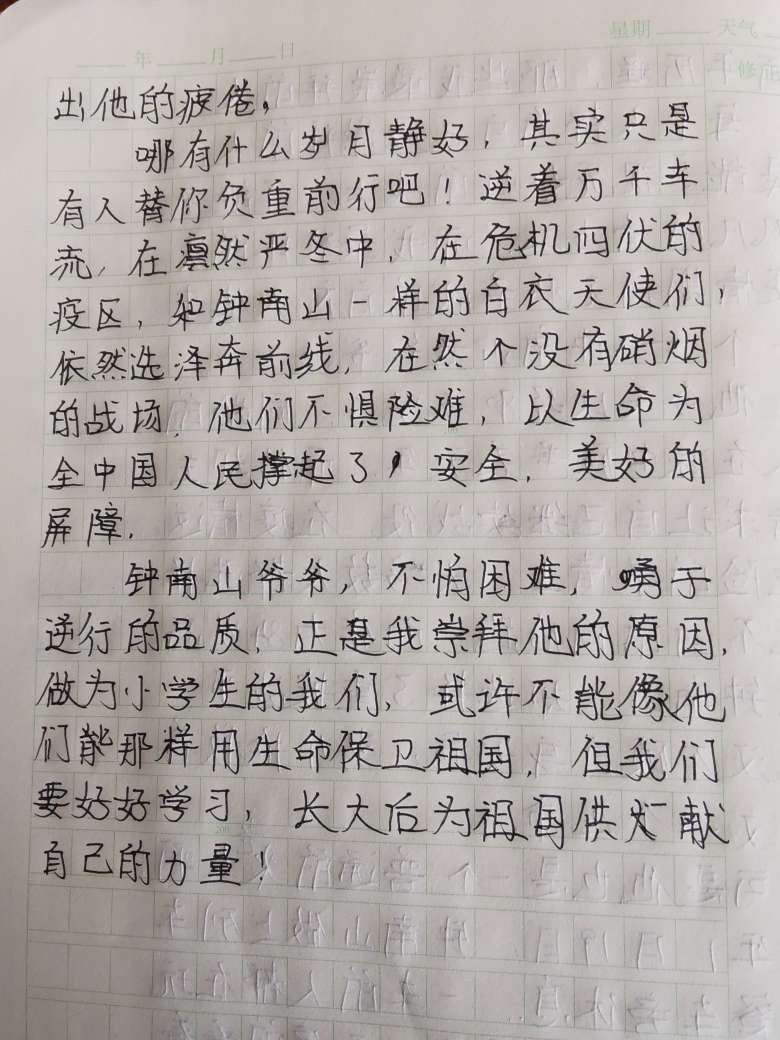 星期 天气
年 月 日
修正
出他的疲倦。
哪有什么岁月静好，其实只是
有人替你负重前行吧！逆着万千车
流，在凛然严冬中，在危机四伏的
疫区，和钟南山一样的白衣天使们，
依然选泽奔前线，在然个没有硝烟
的战场，他们不惧险难，以生命为
全中国人民撑起了安全，美好的
屏障．
钟南山爷爷，不怕困难，勇于
逆行的品质，正是我崇拜他的原因，
做为小学生的我们，或许不能像他
们能那样用生命保卫祖国，但我们
要好好学习，长大后为祖国供献
自己的力量！